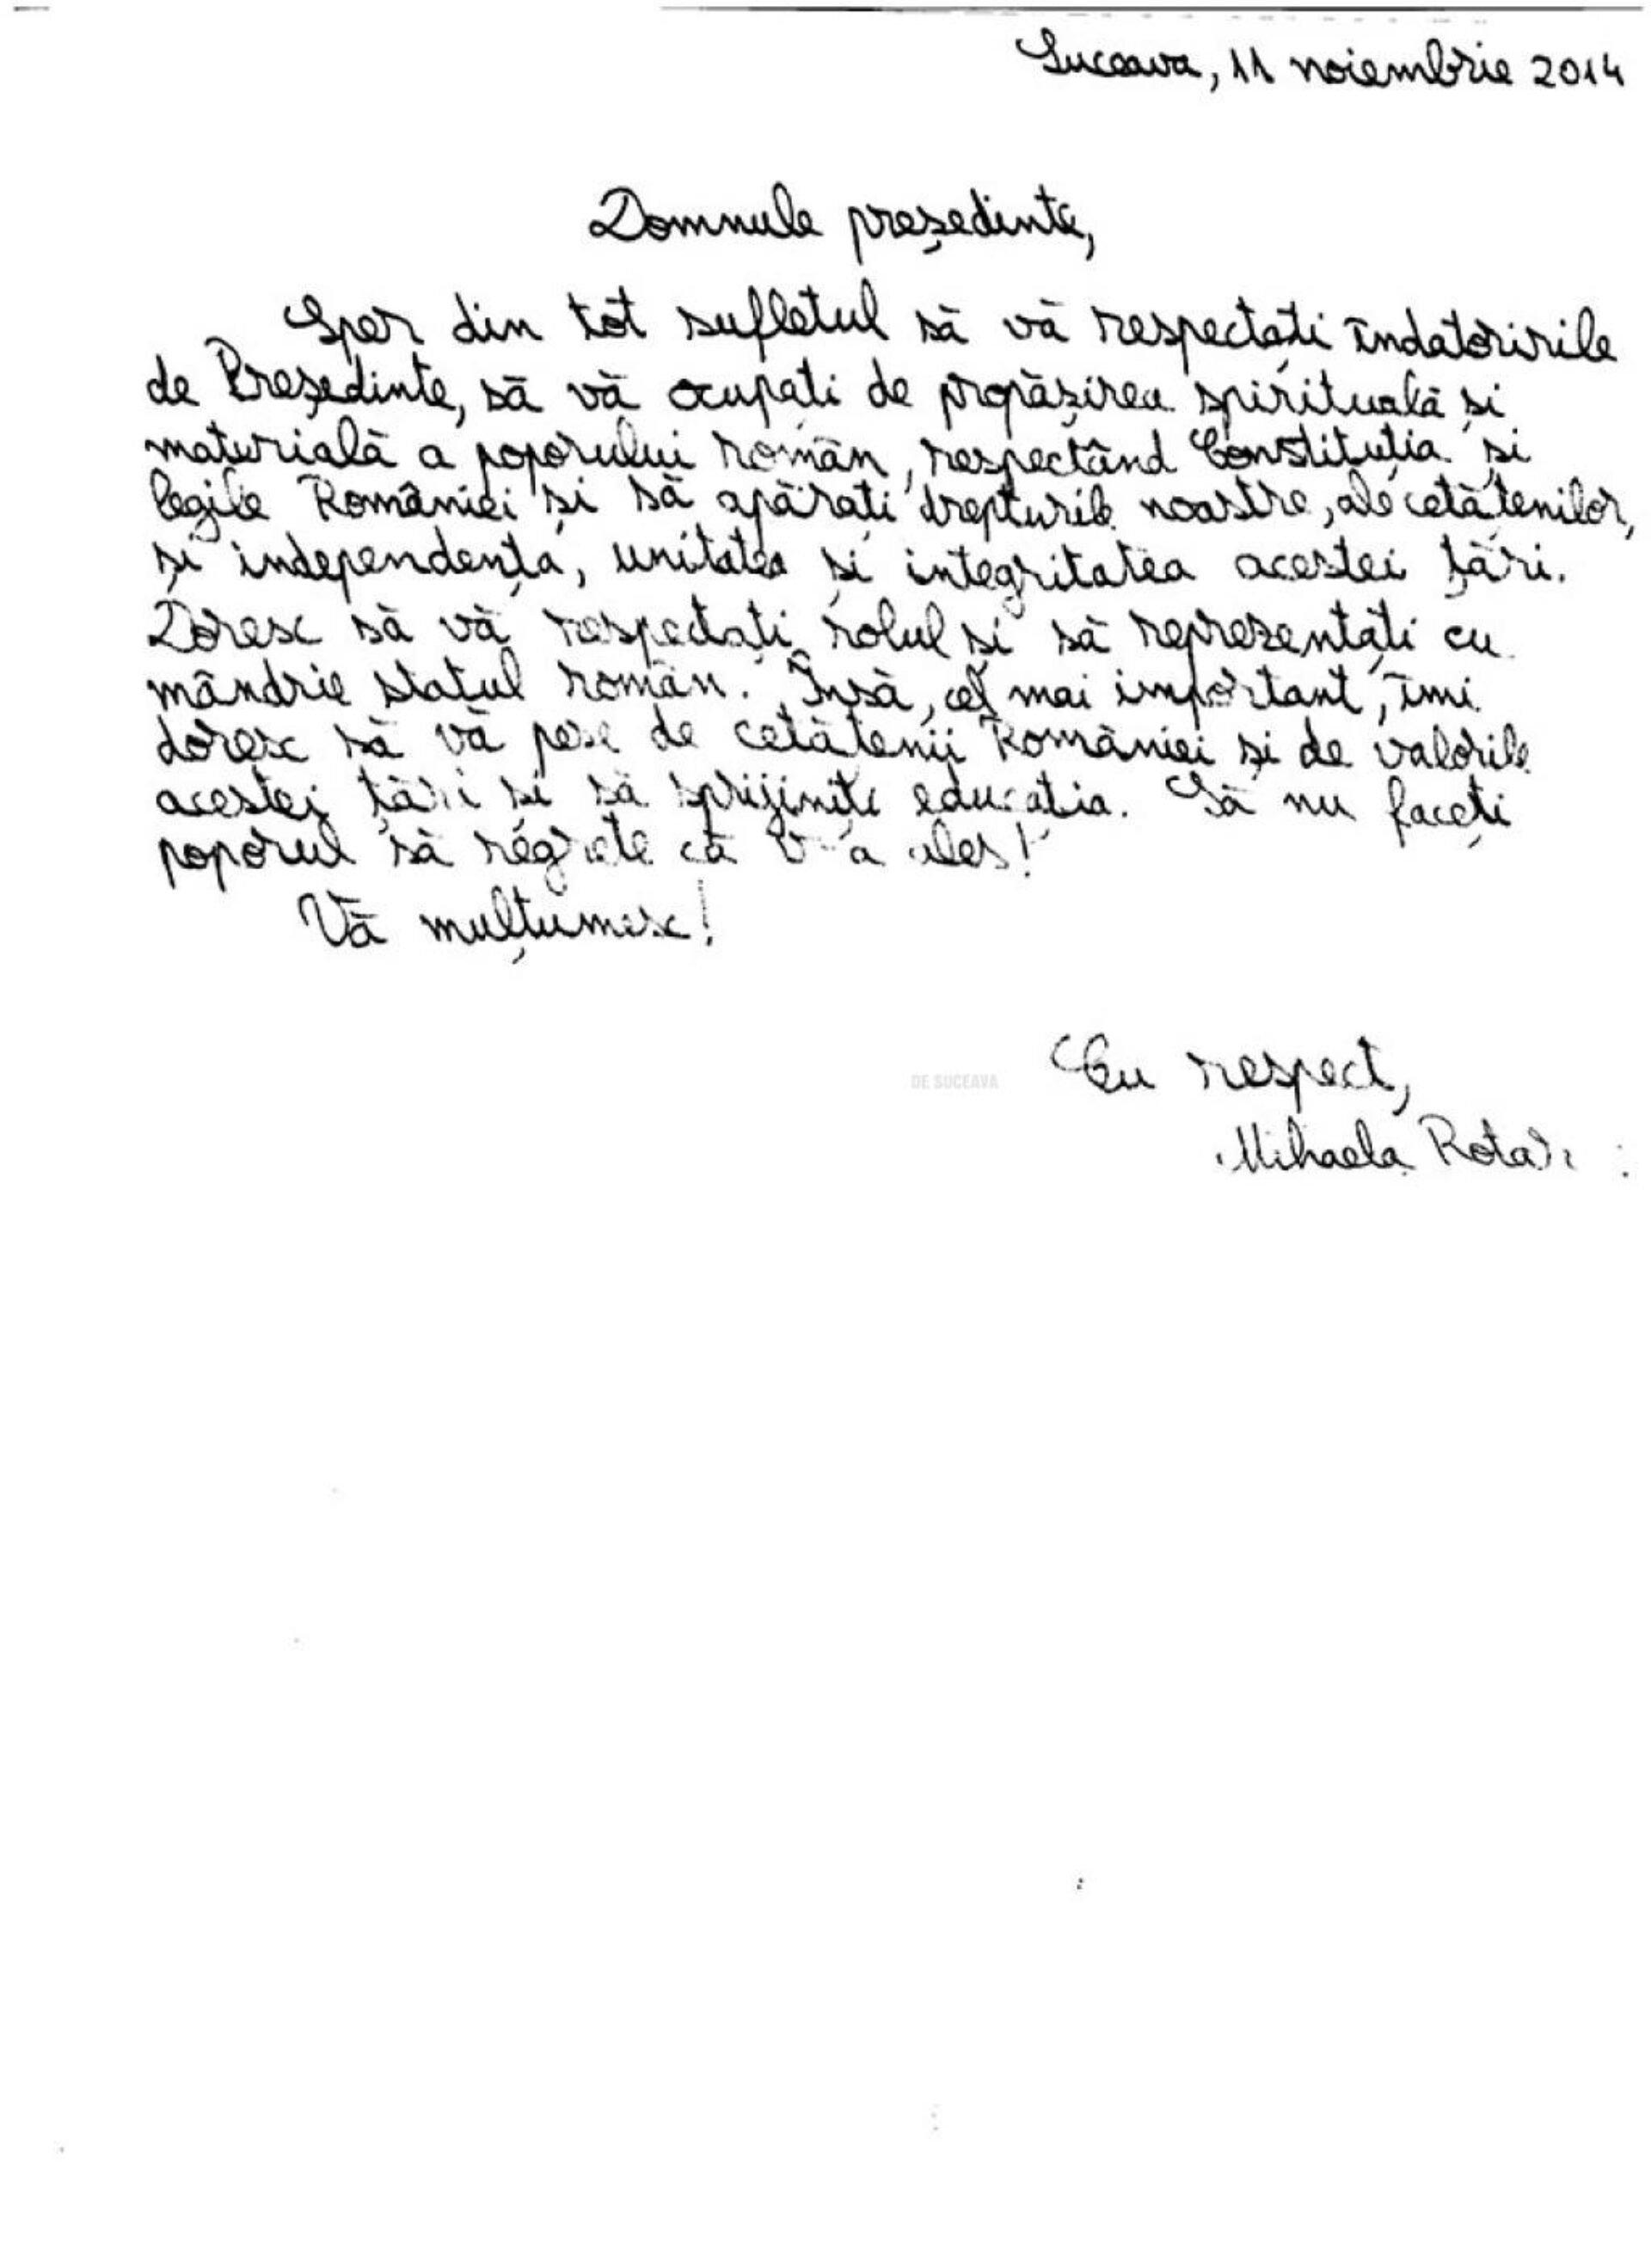 Suceava, 11 noiembrie 2014
Domnule președinte,
Sper din tot sufletul să vă respectați îndatoririle
de Președinte, să vă ocupați de propășirea spirituală și
materială a poporului român, respectând Constituția și
legile României și să apărați drepturile noastre, ale cetățenilor,
și independența, unitatea și integritatea acestei țări.
Doresc să vă respectați rolul și să reprezentați cu
mândrie statul român. Însă, cel mai important, îmi
doresc să vă pese de cetățenii României și de valorile
acestei țări și să sprijiniți educația. Să nu faceți
poporul să regrete că v-a ales!
Vă mulțumesc!
Cu respect,
DE SUCEAVA
Mihaela